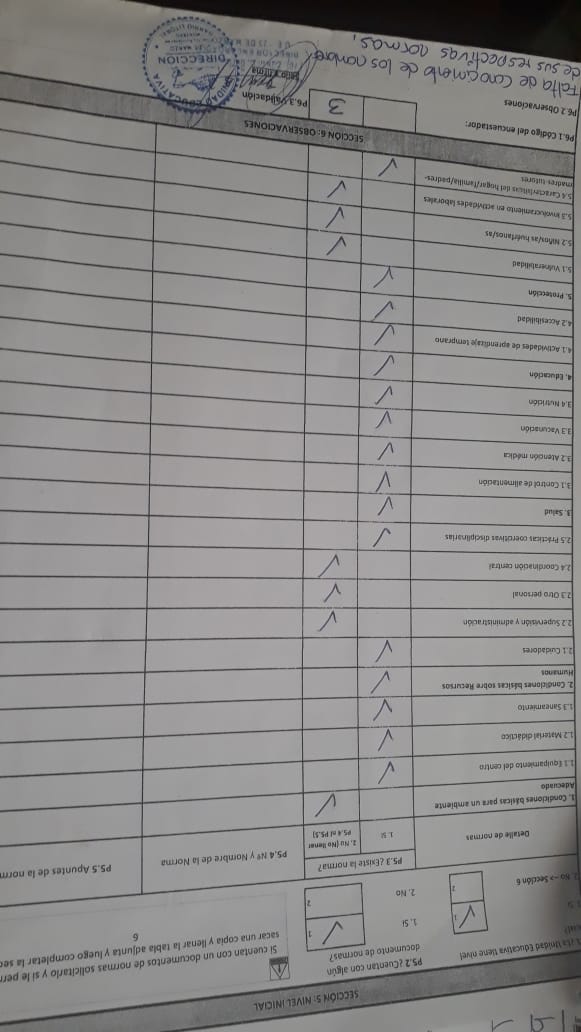 SECCIÓN 5: NIVEL INICIAL
la Unidad Educativa tiene nivel
1
2
2. No -> Sección 6
P5.2 ¿Cuentan con algún
documento de normas?
1. Sí
2. No
1
2
Si cuentan con un documentos de normas solicitarlo y si le
sacar una copia y llenar la tabla adjunta y luego completar la
6
Detalle de normas
P5.3 ¿Existe la norma?
1. Sí
2. No (No llenar
P5.4 ni P5.5)
P5.4 Nº y Nombre de la Norma
P5.5 Apuntes de la
1. Condiciones básicas para un ambiente
Adecuado
✓
1.1 Equipamiento del centro ✓
1.2 Material didáctico ✓
1.3 Saneamiento ✓
2. Condiciones básicas sobre Recursos
Humanos
✓
2.1 Cuidadores ✓
2.2 Supervisión y administración ✓
2.3 Otro personal ✓
2.4 Coordinación central ✓
2.5 Prácticas coercitivas disciplinarias ✓
3. Salud ✓
3.1 Control de alimentación ✓
3.2 Atención médica ✓
3.3 Vacunación ✓
3.4 Nutrición ✓
4. Educación ✓
4.1 Actividades de aprendizaje temprano ✓
4.2 Accesibilidad ✓
5. Protección ✓
5.1 Vulnerabilidad ✓
5.2 Niños/as huérfanos/as ✓
5.3 Involucramiento en actividades laborales ✓
5.4 Características del hogar/familia/padres-
madres tutores
✓
SECCIÓN 6: OBSERVACIONES
P6.1 Código del encuestador:
3
P6.3 Validación
Sello y firma
DIRECCION
P6.2 Observaciones
Falta de conocimiento de los nombres
de sus respectivas normas.